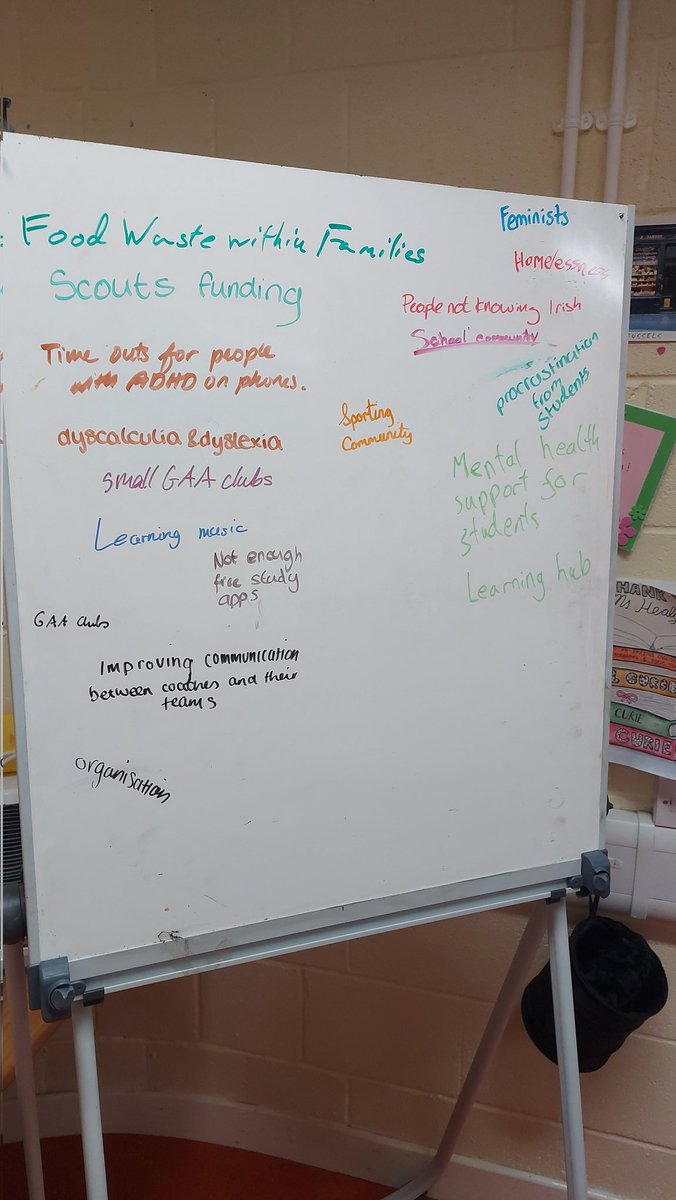 Food Waste within Families
Scouts funding
Time outs for people
with ADHD on phones.
dyscalculia & dyslexia
small GAA clubs
Learning music
Not enough
free study
apps
GAA clubs
Improving communication
between coaches and their
teams
organisation
Feminists
Homelessness
People not knowing Irish
School community
procrastination
from
students
Sporting
Community
Mental health
support for
students
Learning hub
HANK
Ms Healy
CURIE
CURIE